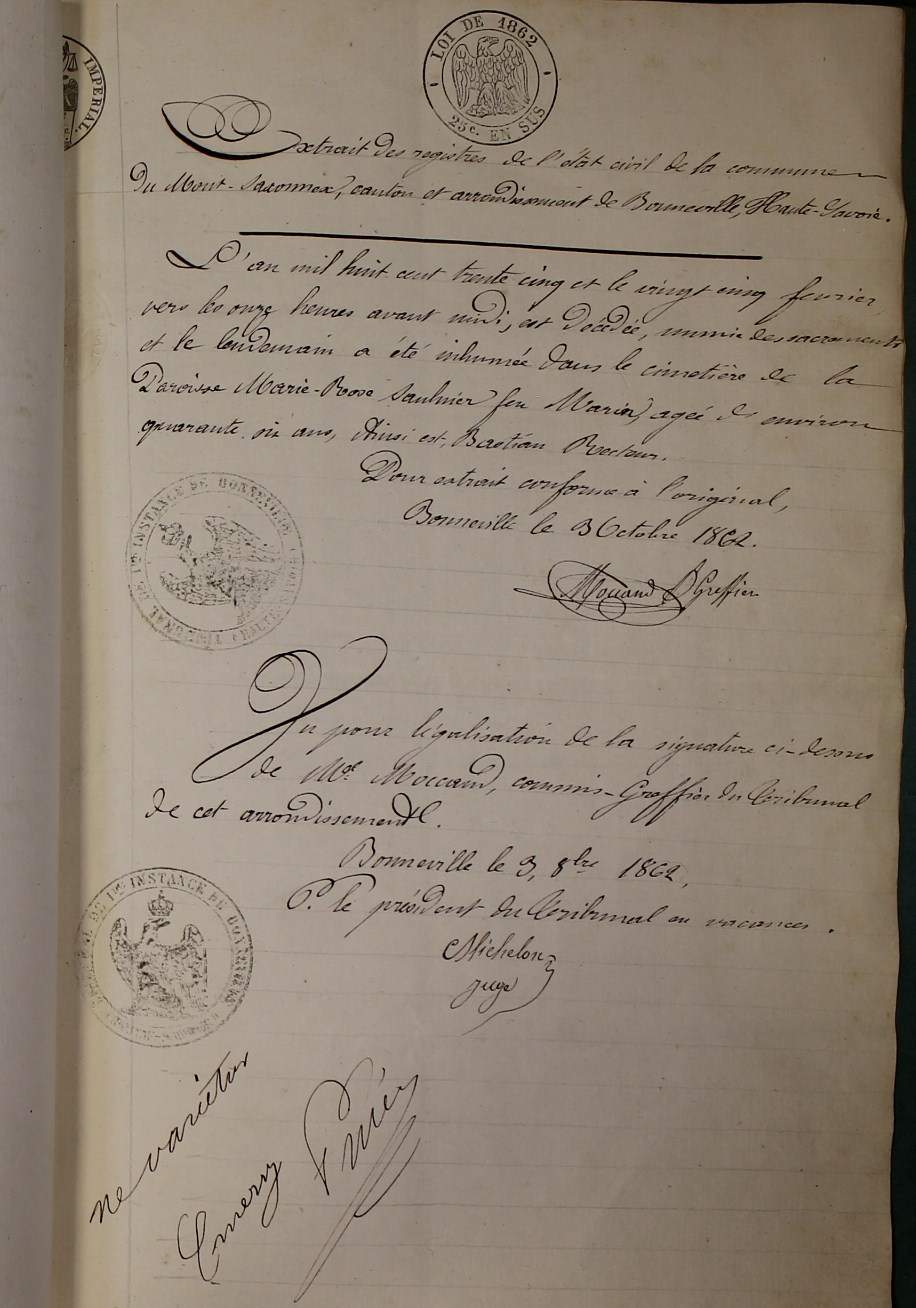 LOI DE 1862
25c. EN SUS
IMPERIAL.
Extrait des registres de l'état civil de la commune
du Mont-Saxonnex, canton et arrondissement de Bonneville, Haute-Savoie.
L'an mil huit cent trente cinq et le vingt cinq fevrier,
vers les onze heures avant midi, est décédée, munie des sacrements
et le lendemain a été inhumée dans le cimetière de la
Paroisse Marie-Rose Saulnier feu Marin, agée d'environ
quarante six ans, Ainsi est, Bastian Recteur.
Pour extrait conforme à l'original,
Bonneville le 3 Octobre 1862.
Moccand Greffier
TRIBUNAL DE 1re INSTANCE DE BONNEVILLE
Vu pour légalisation de la signature ci-dessus
de Me. Moccand, commis-Greffier du Tribunal
de cet arrondissement.
Bonneville le 3, 8bre 1862,
Pr. le président du Tribunal en vacances.
Michelon
juge
DE 1re INSTANCE DE BONNEVILLE
ne varietur
Emery